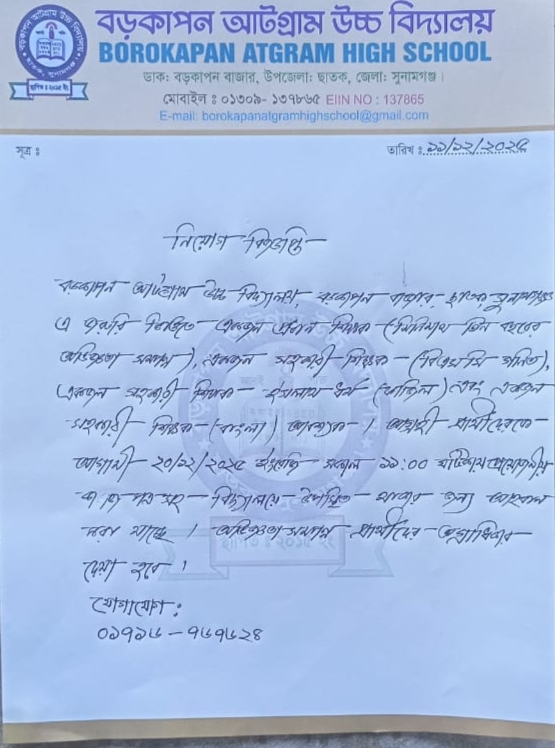 বড়কাপন আটগ্রাম উচ্চ বিদ্যালয়
BOROKAPAN ATGRAM HIGH SCHOOL
ডাক: বড়কাপন বাজার, উপজেলা: ছাতক, জেলা: সুনামগঞ্জ।
মোবাইল : ০১৩০৯- ১৩৭৮৬৫ EIIN NO : 137865
E-mail: borokapanatgramhighschool@gmail.com
সূত্র : তারিখ : ১১/১২/২০২৫
নিয়োগ বিজ্ঞপ্তি
বড়কাপন আটগ্রাম উচ্চ বিদ্যালয়, বড়কাপন বাজার, ছাতক সুনামগঞ্জ
এ জরুরি ভিত্তিতে একজন প্রধান শিক্ষক (নূন্যতম তিন বছরের
অভিজ্ঞতা সম্পন্ন), একজন সহকারী শিক্ষক (বিএসসি গণিত),
একজন সহকারী শিক্ষক ইসলাম ধর্ম (ফাজিল) এবং একজন
সহকারী শিক্ষক (বাংলা) আবশ্যক। আগ্রহী প্রার্থীদেরকে
আগামী ২০/১২/২০২৫ ইংরেজি সকাল ১১:০০ ঘটিকায় প্রয়োজনীয়
কাগজ পত্র সহ বিদ্যালয়ে উপস্থিত থাকার জন্য আহবান
করা যাচ্ছে। অভিজ্ঞতা সম্পন্ন প্রার্থীদের অগ্রাধিকার
দেয়া হবে।
যোগাযোগ:
০১৭১৬-৭৬৭৬২৪
স্থাপিত : ২০১৫ ইং